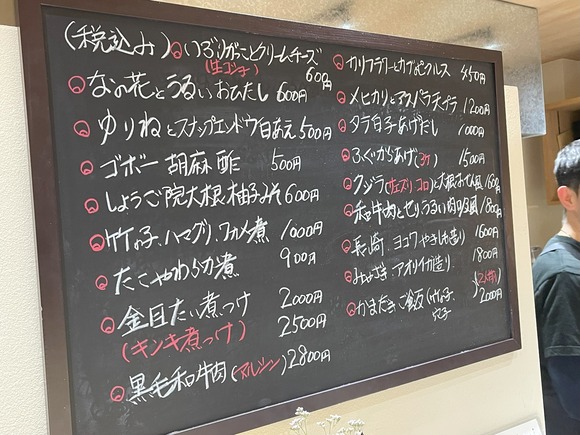 (税込み)
いぶりがっことクリームチーズ
(生ゴチ) 600円
なの花とうるいおひたし 600円
ゆりねとスナップエンドウ白あえ 500円
ゴボー胡麻酢 500円
しょうご院大根、柚子みそ 600円
竹の子、ハマグリ、ワカメ煮 1000円
たこやわらか煮 900円
金目たい煮つけ 2000円
(キンキ煮つけ) 2500円
黒毛和牛肉(マルシン) 2800円
カリフラワーとカブのピクルス 450円
メヒカリとアスパラ天プラ 1200円
タラ白子あげだし 1000円
ふぐからあげ(3ケ) 1500円
クジラ(コロ)と大根 1600円
和牛肉とせり、うるい肉吸風 1800円
長崎、ヨコワやきしも造り 1600円
みやざき、アオリイカ造り 1800円
かまだきご飯(竹の子 (2人前) 2000円